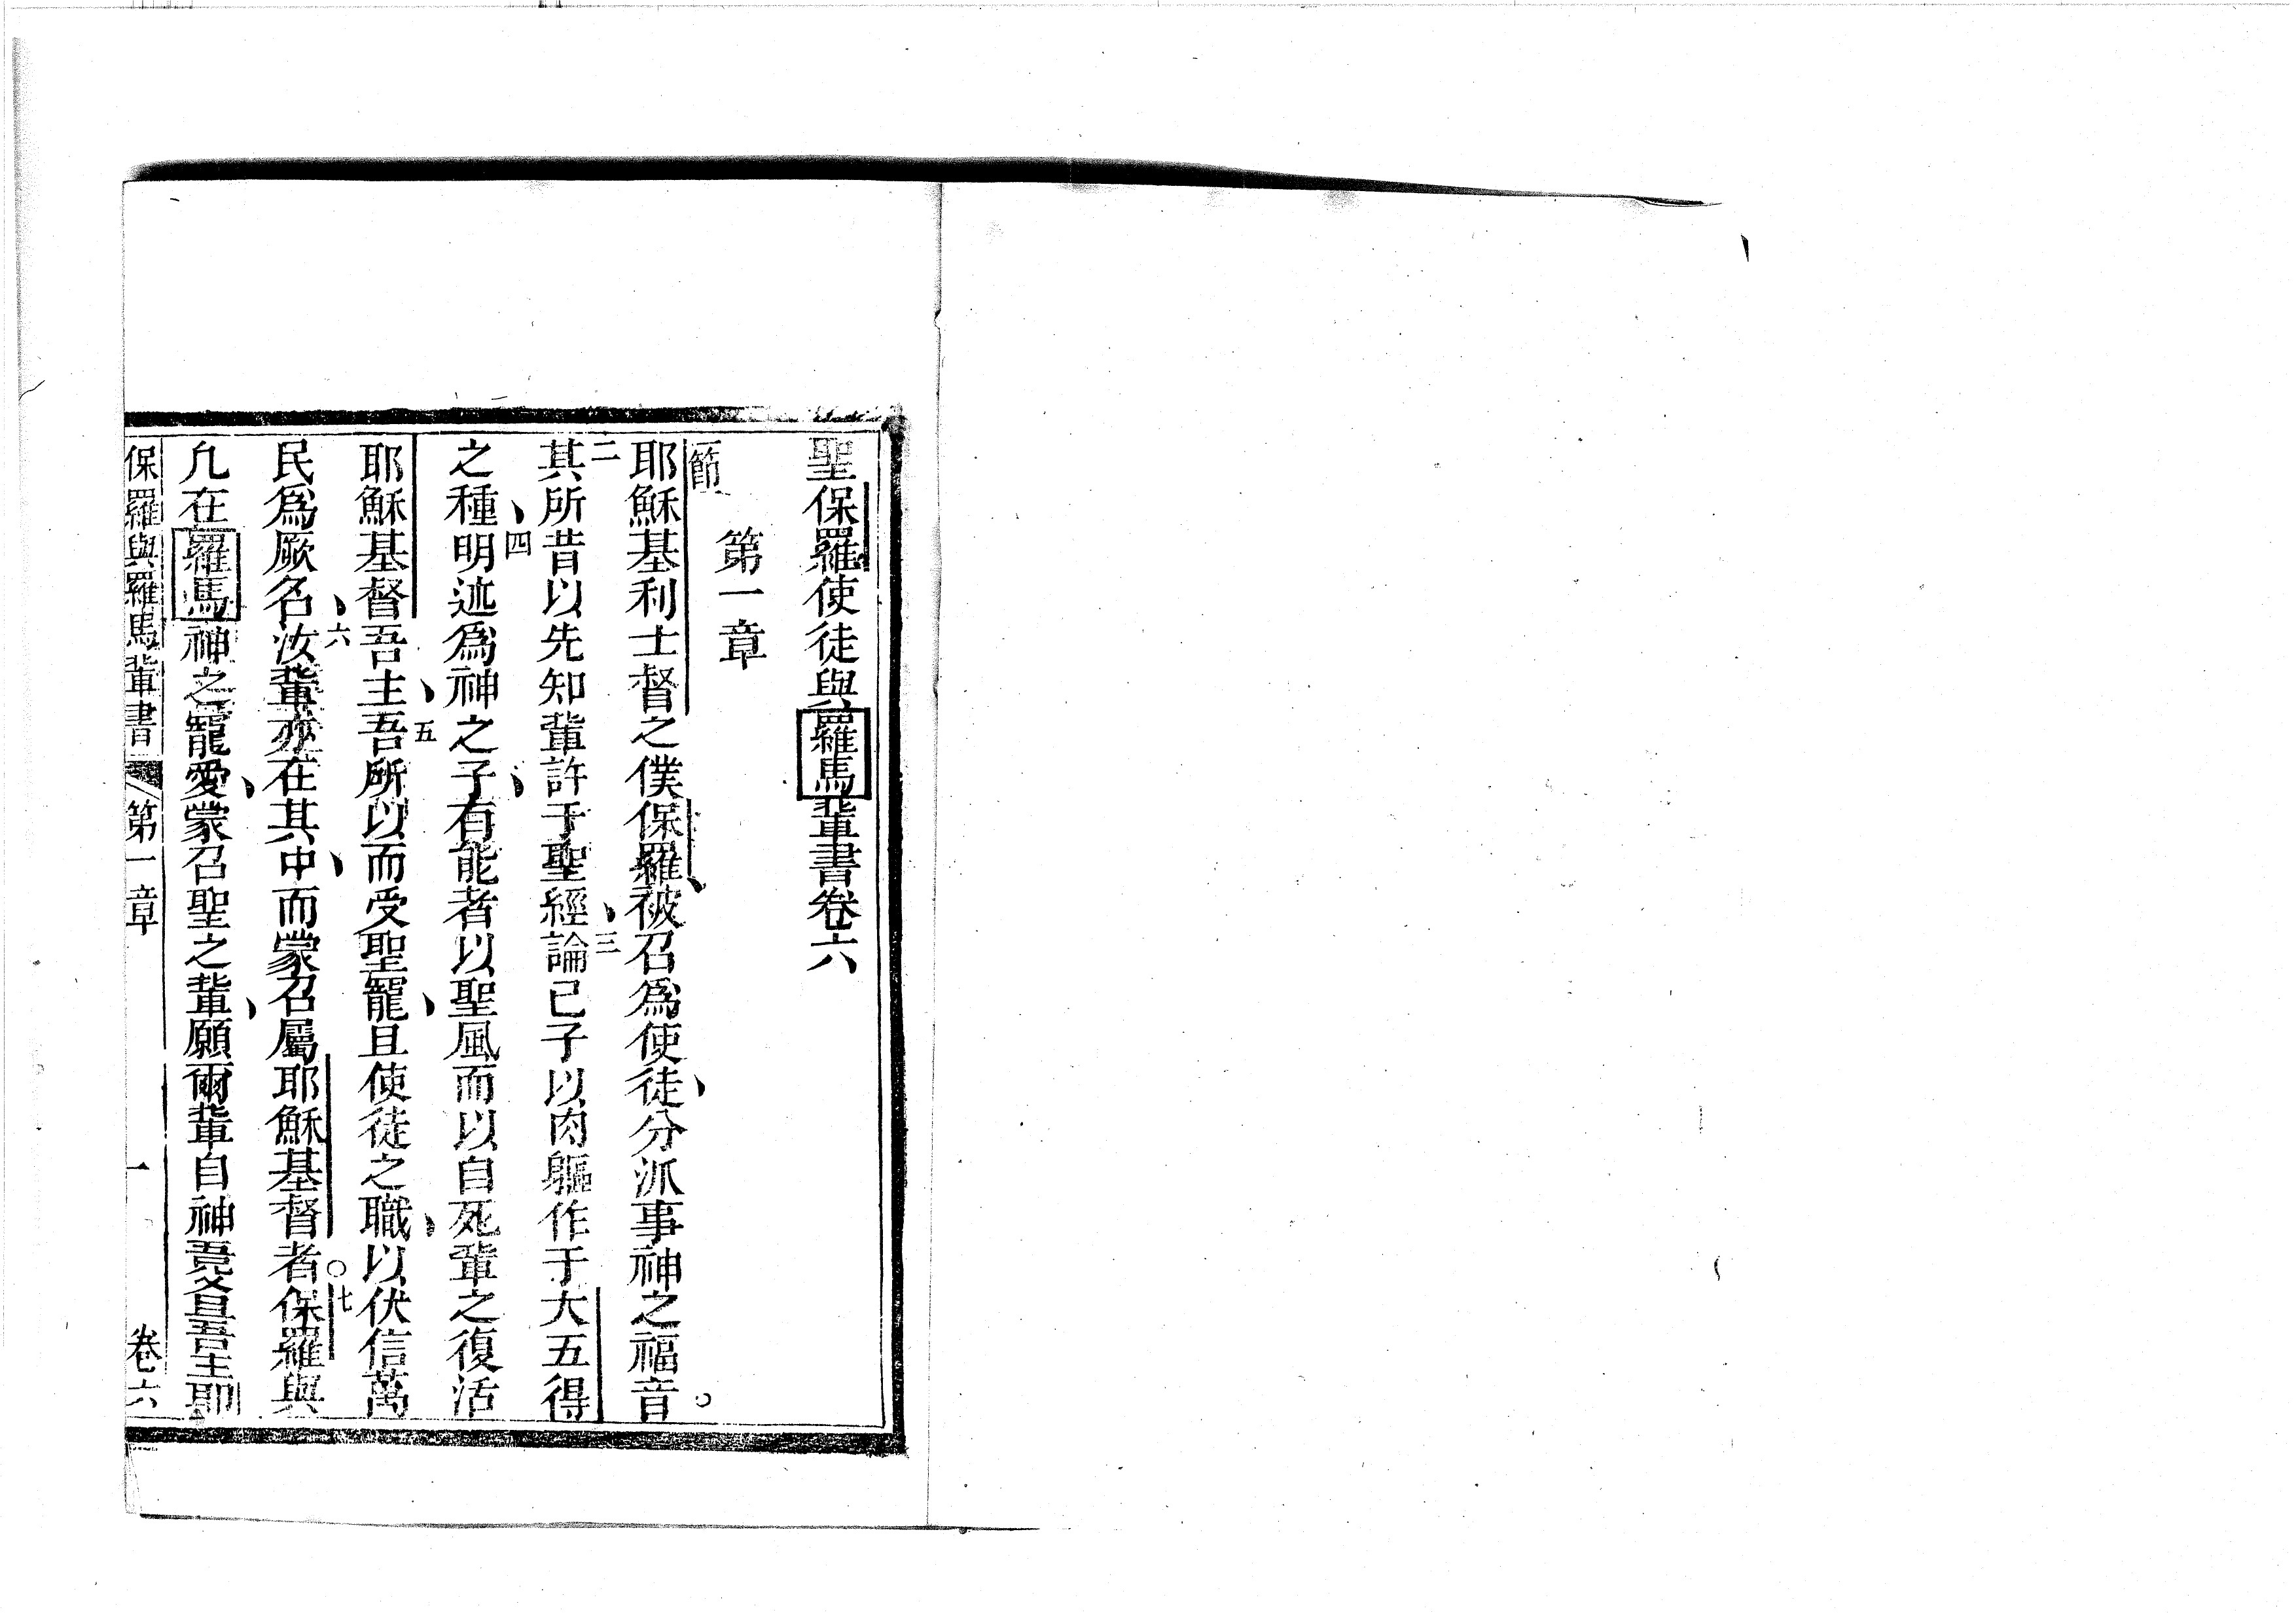 聖保羅使徒與羅馬輩書卷六
第一章
一節
耶穌基利士督之僕保羅、被召爲使徒、分派事神之福音。
二其所昔以先知輩許于聖經、三論己子以肉軀作于大五得
之種、四明迹爲神之子、有能者以聖風而以自死輩之復活
耶穌基督吾主、五吾所以而受聖寵、且使徒之職、以伏信萬
民爲厥名、六汝輩亦在其中、而蒙召屬耶穌基督者。七保羅與
凡在羅馬神之寵愛、蒙召聖之輩、願爾輩自神吾父且吾主耶
保羅與羅馬輩書 第一章 一 卷六